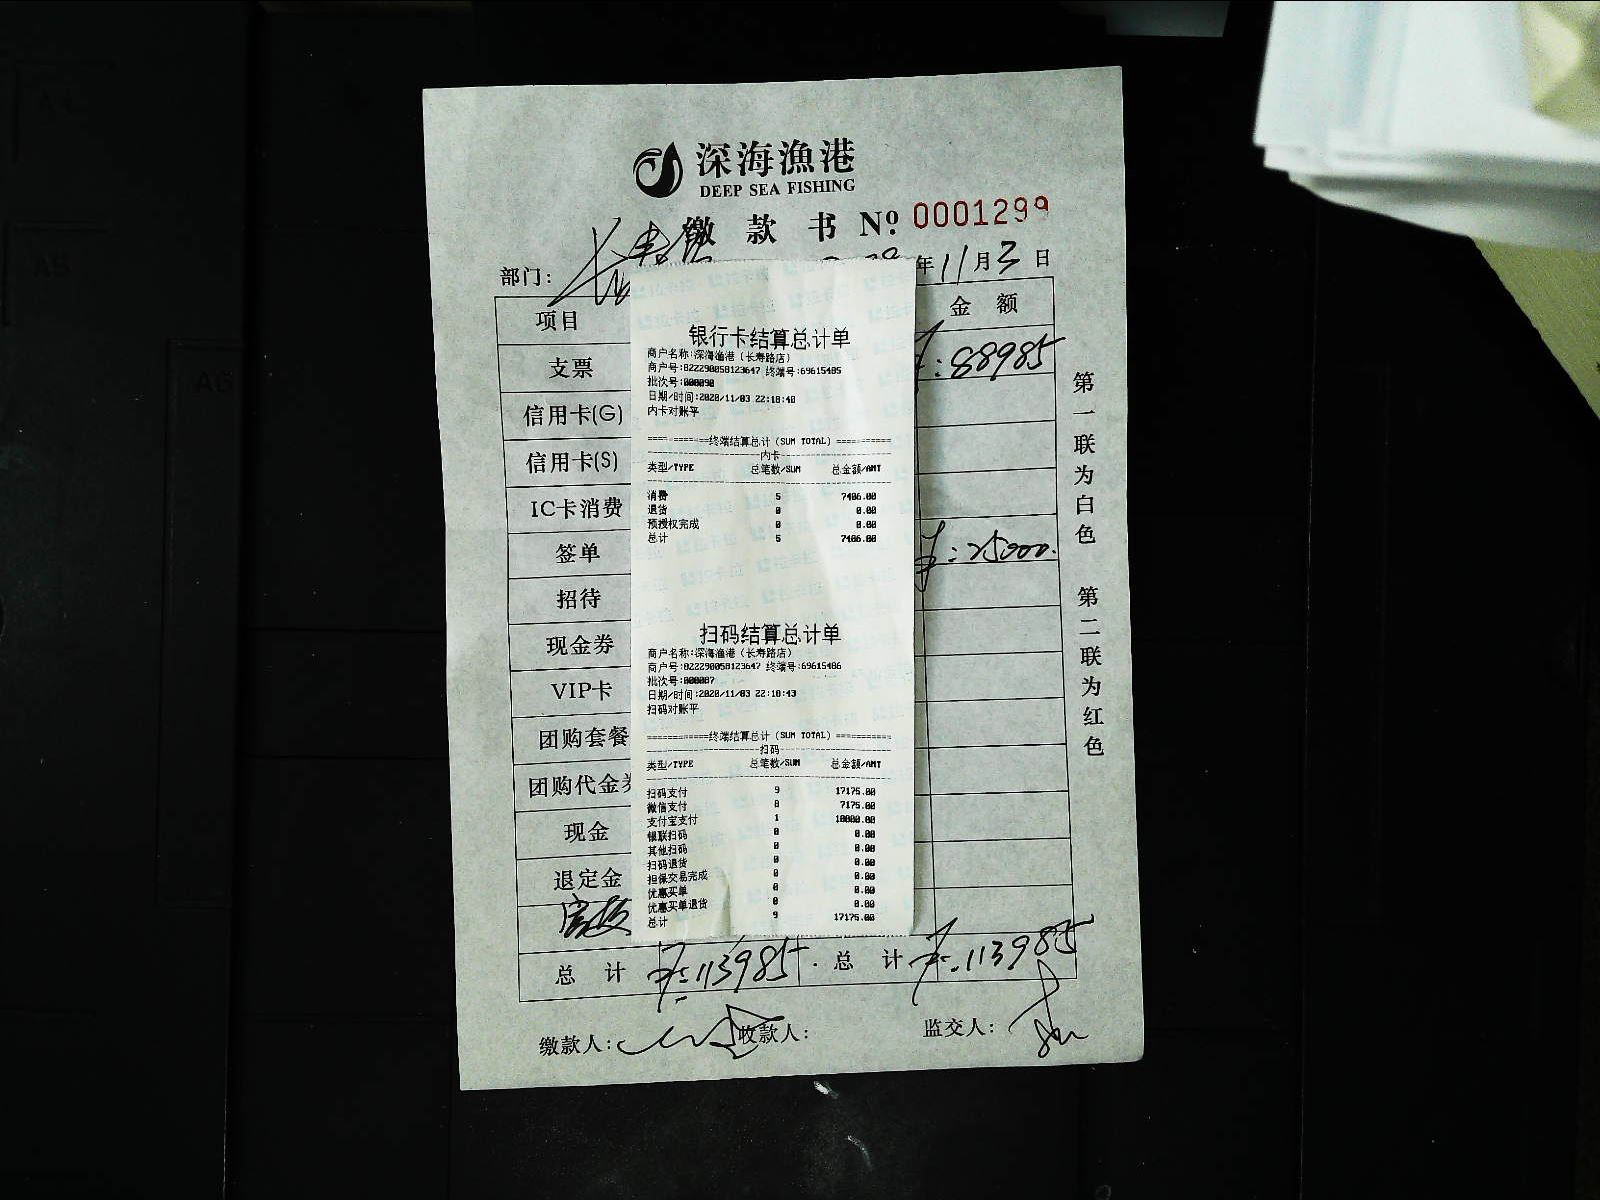 深海漁港
DEEP SEA FISHING
缴款书 Nº: 0001299
部门: 年11月3日
项目 金额
支票 ¥:88985
信用卡(G)
信用卡(S)
IC卡消费
签单 ¥:25000.
招待
现金券
VIP卡
团购套餐
团购代金券
现金
退定金
总计 ¥:113985. 总计 ¥:113985
缴款人: 收款人: 监交人:
第一联为白色 第二联为红色
银行卡结算总计单
商户名称:深海渔港(长寿路店)
商户号:822290058123647 终端号:69615485
批次号:000090
日期/时间:2020/11/03 22:18:40
内卡对账平
===========终端结算总计(SUM TOTAL)===========
内卡
类型/TYPE 总笔数/SUM 总金额/AMT
消费 5 7406.00
退货 0 0.00
预授权完成 0 0.00
总计 5 7406.00
扫码结算总计单
商户名称:深海渔港(长寿路店)
商户号:822290058123647 终端号:69615486
批次号:000087
日期/时间:2020/11/03 22:18:43
扫码对账平
===========终端结算总计(SUM TOTAL)===========
扫码
类型/TYPE 总笔数/SUM 总金额/AMT
扫码支付 9 17175.00
微信支付 8 7175.00
支付宝支付 1 10000.00
银联扫码 0 0.00
其他扫码 0 0.00
扫码退货 0 0.00
担保交易完成 0 0.00
优惠买单 0 0.00
优惠买单退货 0 0.00
总计 9 17175.00